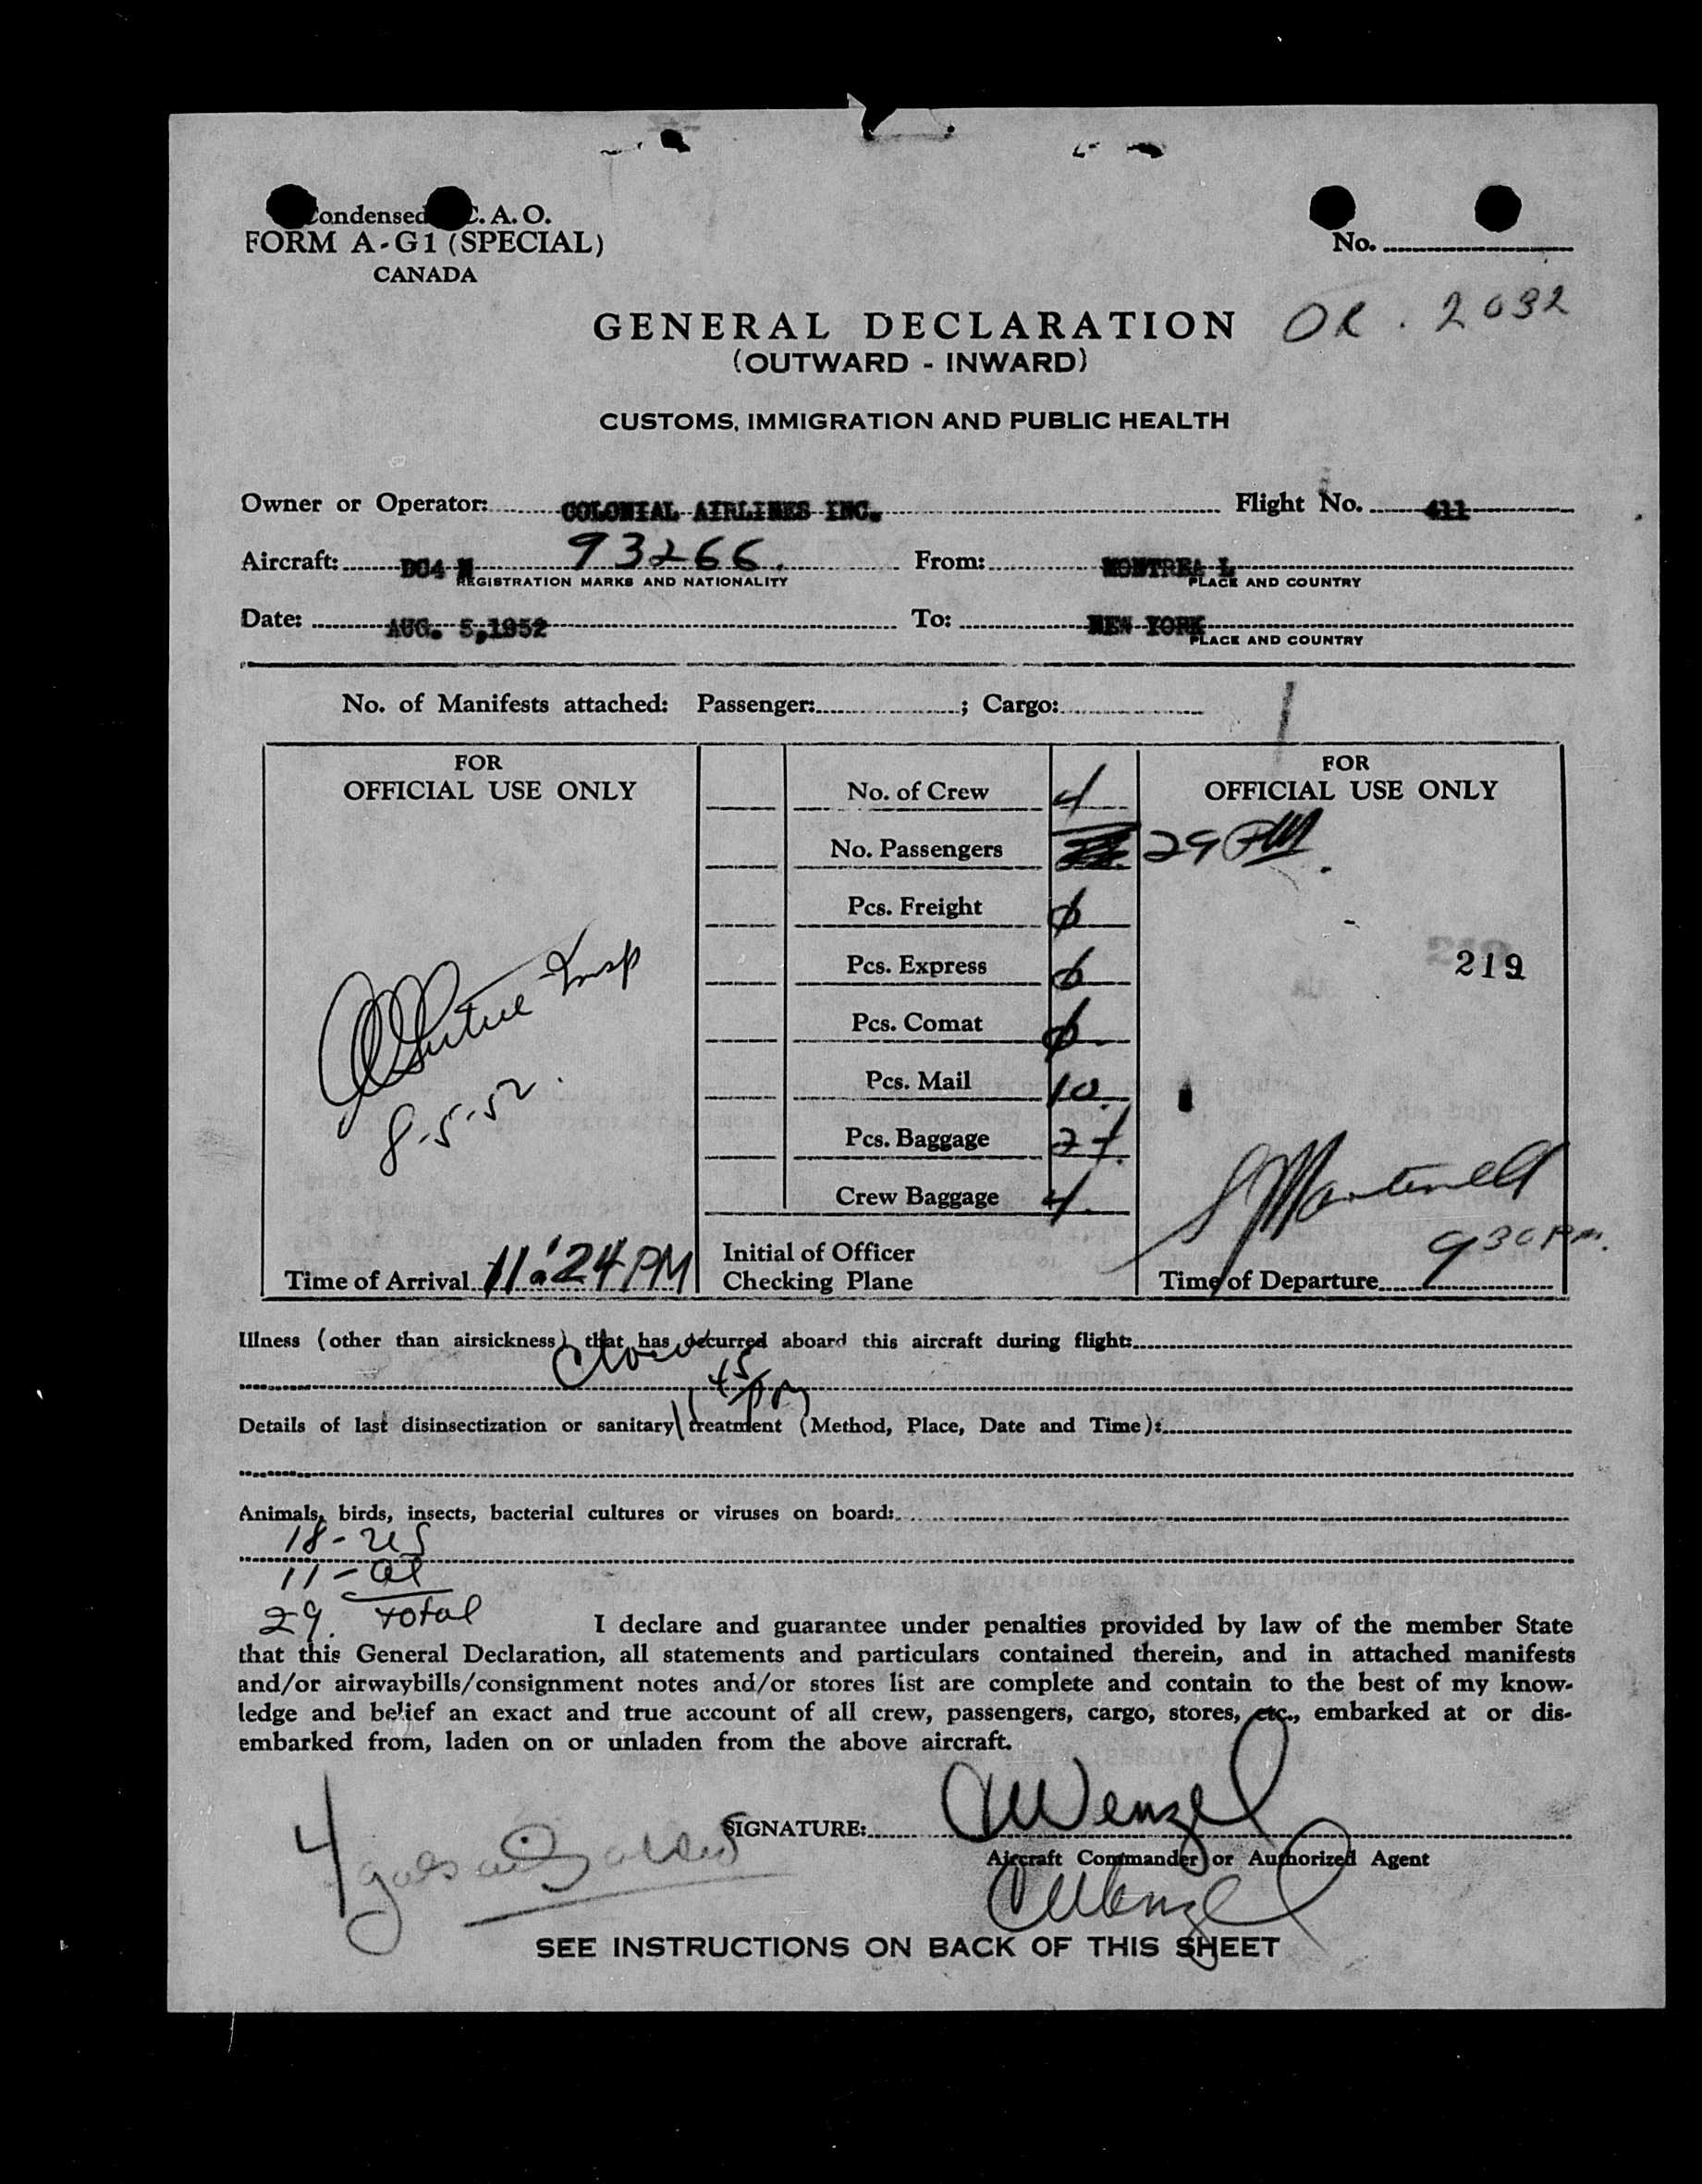 Condensed I.C.A.O.
FORM A-G1 (SPECIAL)
CANADA
No.
OR. 2032
GENERAL DECLARATION
(OUTWARD - INWARD)
CUSTOMS, IMMIGRATION AND PUBLIC HEALTH
Owner or Operator: COLONIAL AIRLINES INC. Flight No. 411
Aircraft: DC4 N 93266. From: MONTREA L
REGISTRATION MARKS AND NATIONALITY PLACE AND COUNTRY
Date: AUG. 5,1952 To: NEW YORK
PLACE AND COUNTRY
No. of Manifests attached: Passenger: ; Cargo:
FOR
OFFICIAL USE ONLY
Insp
8-5-52.
Time of Arrival 11:24 PM
No. of Crew 4
No. Passengers 29
Pcs. Freight 0
Pcs. Express 0
Pcs. Comat 0
Pcs. Mail 10
Pcs. Baggage
Crew Baggage 4
Initial of Officer
Checking Plane
FOR
OFFICIAL USE ONLY
219
Time of Departure 9 30 P.m.
Illness (other than airsickness) that has occurred aboard this aircraft during flight:
45 pm
Details of last disinsectization or sanitary treatment (Method, Place, Date and Time):
Animals, birds, insects, bacterial cultures or viruses on board:
18 - US
11 - al
29. total
I declare and guarantee under penalties provided by law of the member State
that this General Declaration, all statements and particulars contained therein, and in attached manifests
and/or airwaybills/consignment notes and/or stores list are complete and contain to the best of my know-
ledge and belief an exact and true account of all crew, passengers, cargo, stores, etc., embarked at or dis-
embarked from, laden on or unladen from the above aircraft.
4
SIGNATURE: Wenzel
Aircraft Commander or Authorized Agent
Wenzel
SEE INSTRUCTIONS ON BACK OF THIS SHEET